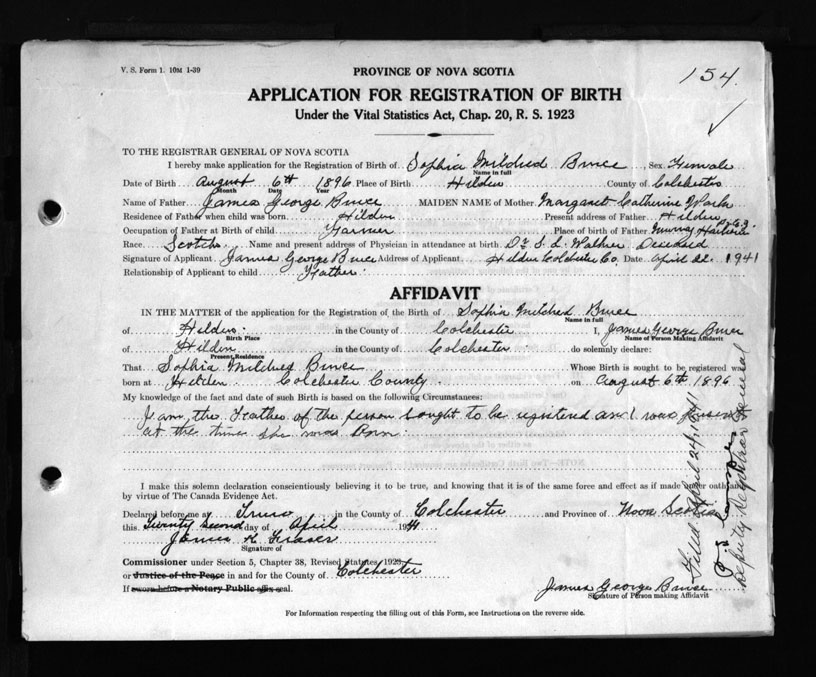 V. S. Form 1. 10M 1-39
154.
PROVINCE OF NOVA SCOTIA
APPLICATION FOR REGISTRATION OF BIRTH
Under the Vital Statistics Act, Chap. 20, R. S. 1923
TO THE REGISTRAR GENERAL OF NOVA SCOTIA
I hereby make application for the Registration of Birth of Sophia Mildred Bruce Sex Female
Name in full
Date of Birth August 6th 1896 Place of Birth Hilden County of Colchester
Month Date Year
Name of Father James George Bruce MAIDEN NAME of Mother Margaret Catherine
Residence of Father when child was born Hilden Present address of Father Hilden
Occupation of Father at Birth of child Farmer Place of birth of Father
Race Scotch Name and present address of Physician in attendance at birth Dr S. L. Walker Deceased
Signature of Applicant James George Bruce Address of Applicant Hilden Colchester Co. Date April 22 1941
Relationship of Applicant to child Father
AFFIDAVIT
IN THE MATTER of the application for the Registration of the Birth of Sophia Mildred Bruce
Name in full
of Hilden in the County of Colchester I, James George Bruce
Birth Place Name of Person Making Affidavit
of Hilden in the County of Colchester do solemnly declare:
Present Residence
That Sophia Mildred Bruce Whose Birth is sought to be registered was
born at Hilden Colchester County on August 6th 1896
My knowledge of the fact and date of such Birth is based on the following Circumstances:
I am the Father of the person sought to be registered and I was present
at the time she was Born
I make this solemn declaration conscientiously believing it to be true, and knowing that it is of the same force and effect as if made under oath and
by virtue of The Canada Evidence Act.
Declared before me at Truro in the County of Colchester and Province of Nova Scotia
this Twenty Second day of April 1941
James K Fraser
Signature of
Commissioner under Section 5, Chapter 38, Revised Statutes, 1923
or Justice of the Peace in and for the County of Colchester
If sworn before a Notary Public affix seal.
James George Bruce
Signature of Person making Affidavit
For Information respecting the filling out of this Form, see Instructions on the reverse side.
Filed April 24, 1941
Deputy Registrar General